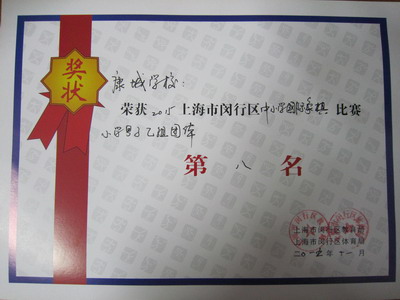 奖状
康城学校：
荣获2015上海市闵行区中小学国际象棋比赛
小学男子乙组团体
第八名
上海市闵行区教育局
上海市闵行区体育局
二〇一五年十一月